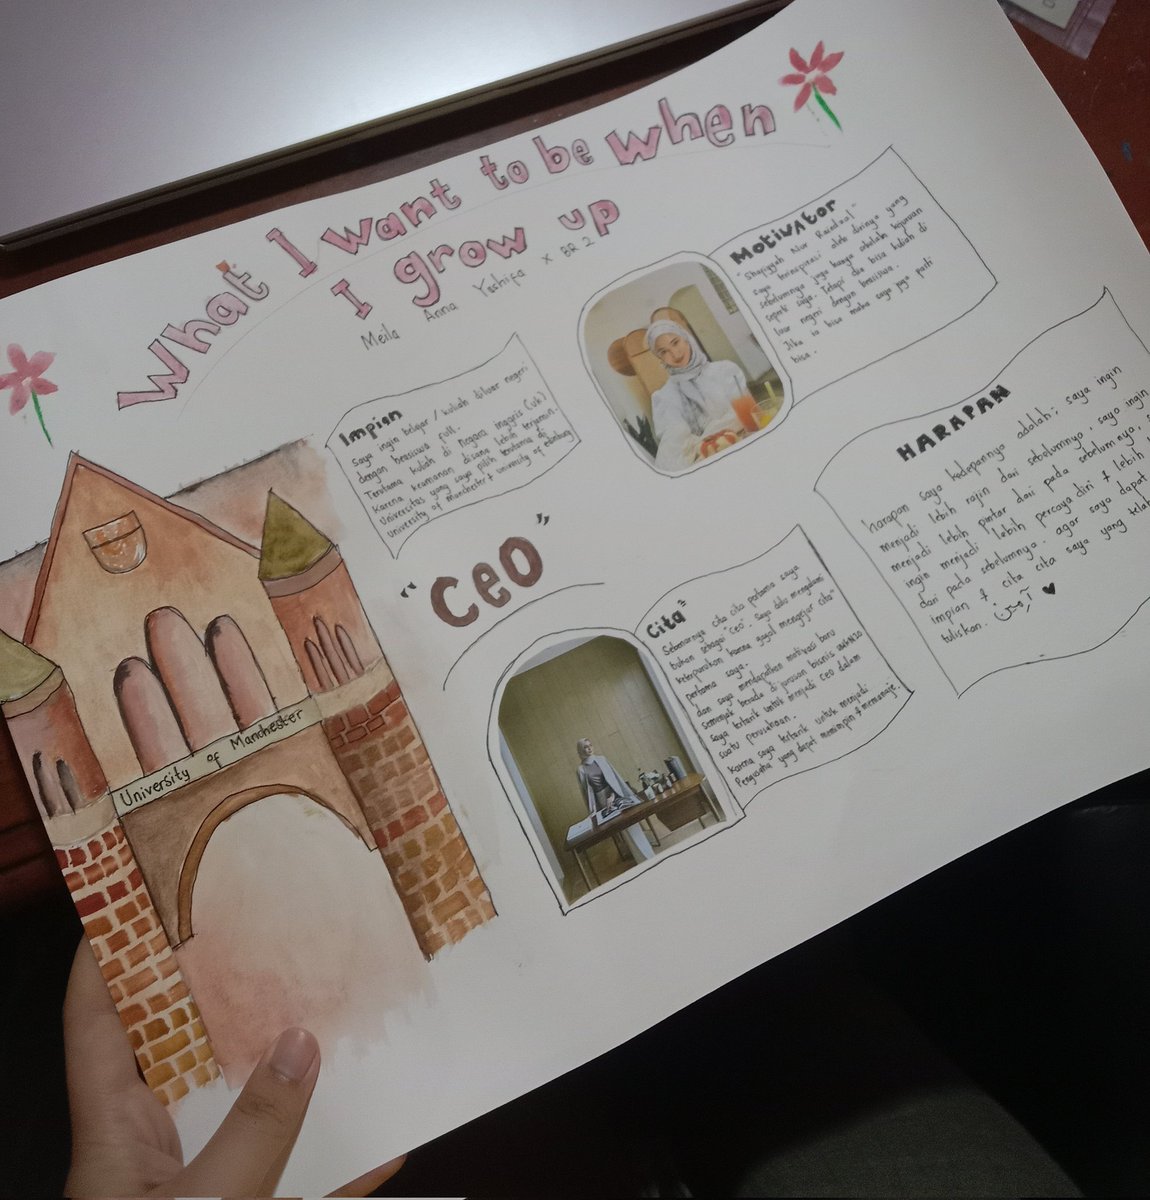 What I want to be when
I grow up
Meila Anna Yoshifa x BR 2
Motivator
"Shafiyyah Nur Raidaal"
saya terinspirasi oleh dirinya yang
sebelumnya juga hanya sekolah kejuruan
seperti saya. Tetapi dia bisa kuliah di
luar negeri dengan beasiswa.
Jika ia bisa maka saya juga pasti
bisa.
Impian
Saya ingin belajar / kuliah diluar negeri
dengan beasiswa full.
Terutama kuliah di Negara Inggris (UK)
Karena keamanan disana lebih terjamin.
Universitas yang saya pilih terutama di
University of Manchester & university of
HARAPAN
harapan saya kedepannya adalah: saya ingin
menjadi lebih rajin dari sebelumnya, saya ingin
menjadi lebih pintar dari pada sebelumnya,
ingin menjadi lebih percaya diri & lebih
dari pada sebelumnya. agar saya dapat
impian & cita cita saya yang telah
tuliskan. آمين
"CEO"
Cita²
Sebenarnya cita cita pertama saya
bukan sebagai "CEO". Saya dulu mengalami
keterpurukan karna gagal mengejar cita"
pertama saya.
dan saya mendapatkan motivasi baru
semenjak berada di jurusan bisnis
saya tertarik untuk menjadi CEO dalam
suatu perusahaan.
Karna saya tertarik untuk menjadi
Pengusaha yang dapat memimpin & memanaje.
University of Manchester